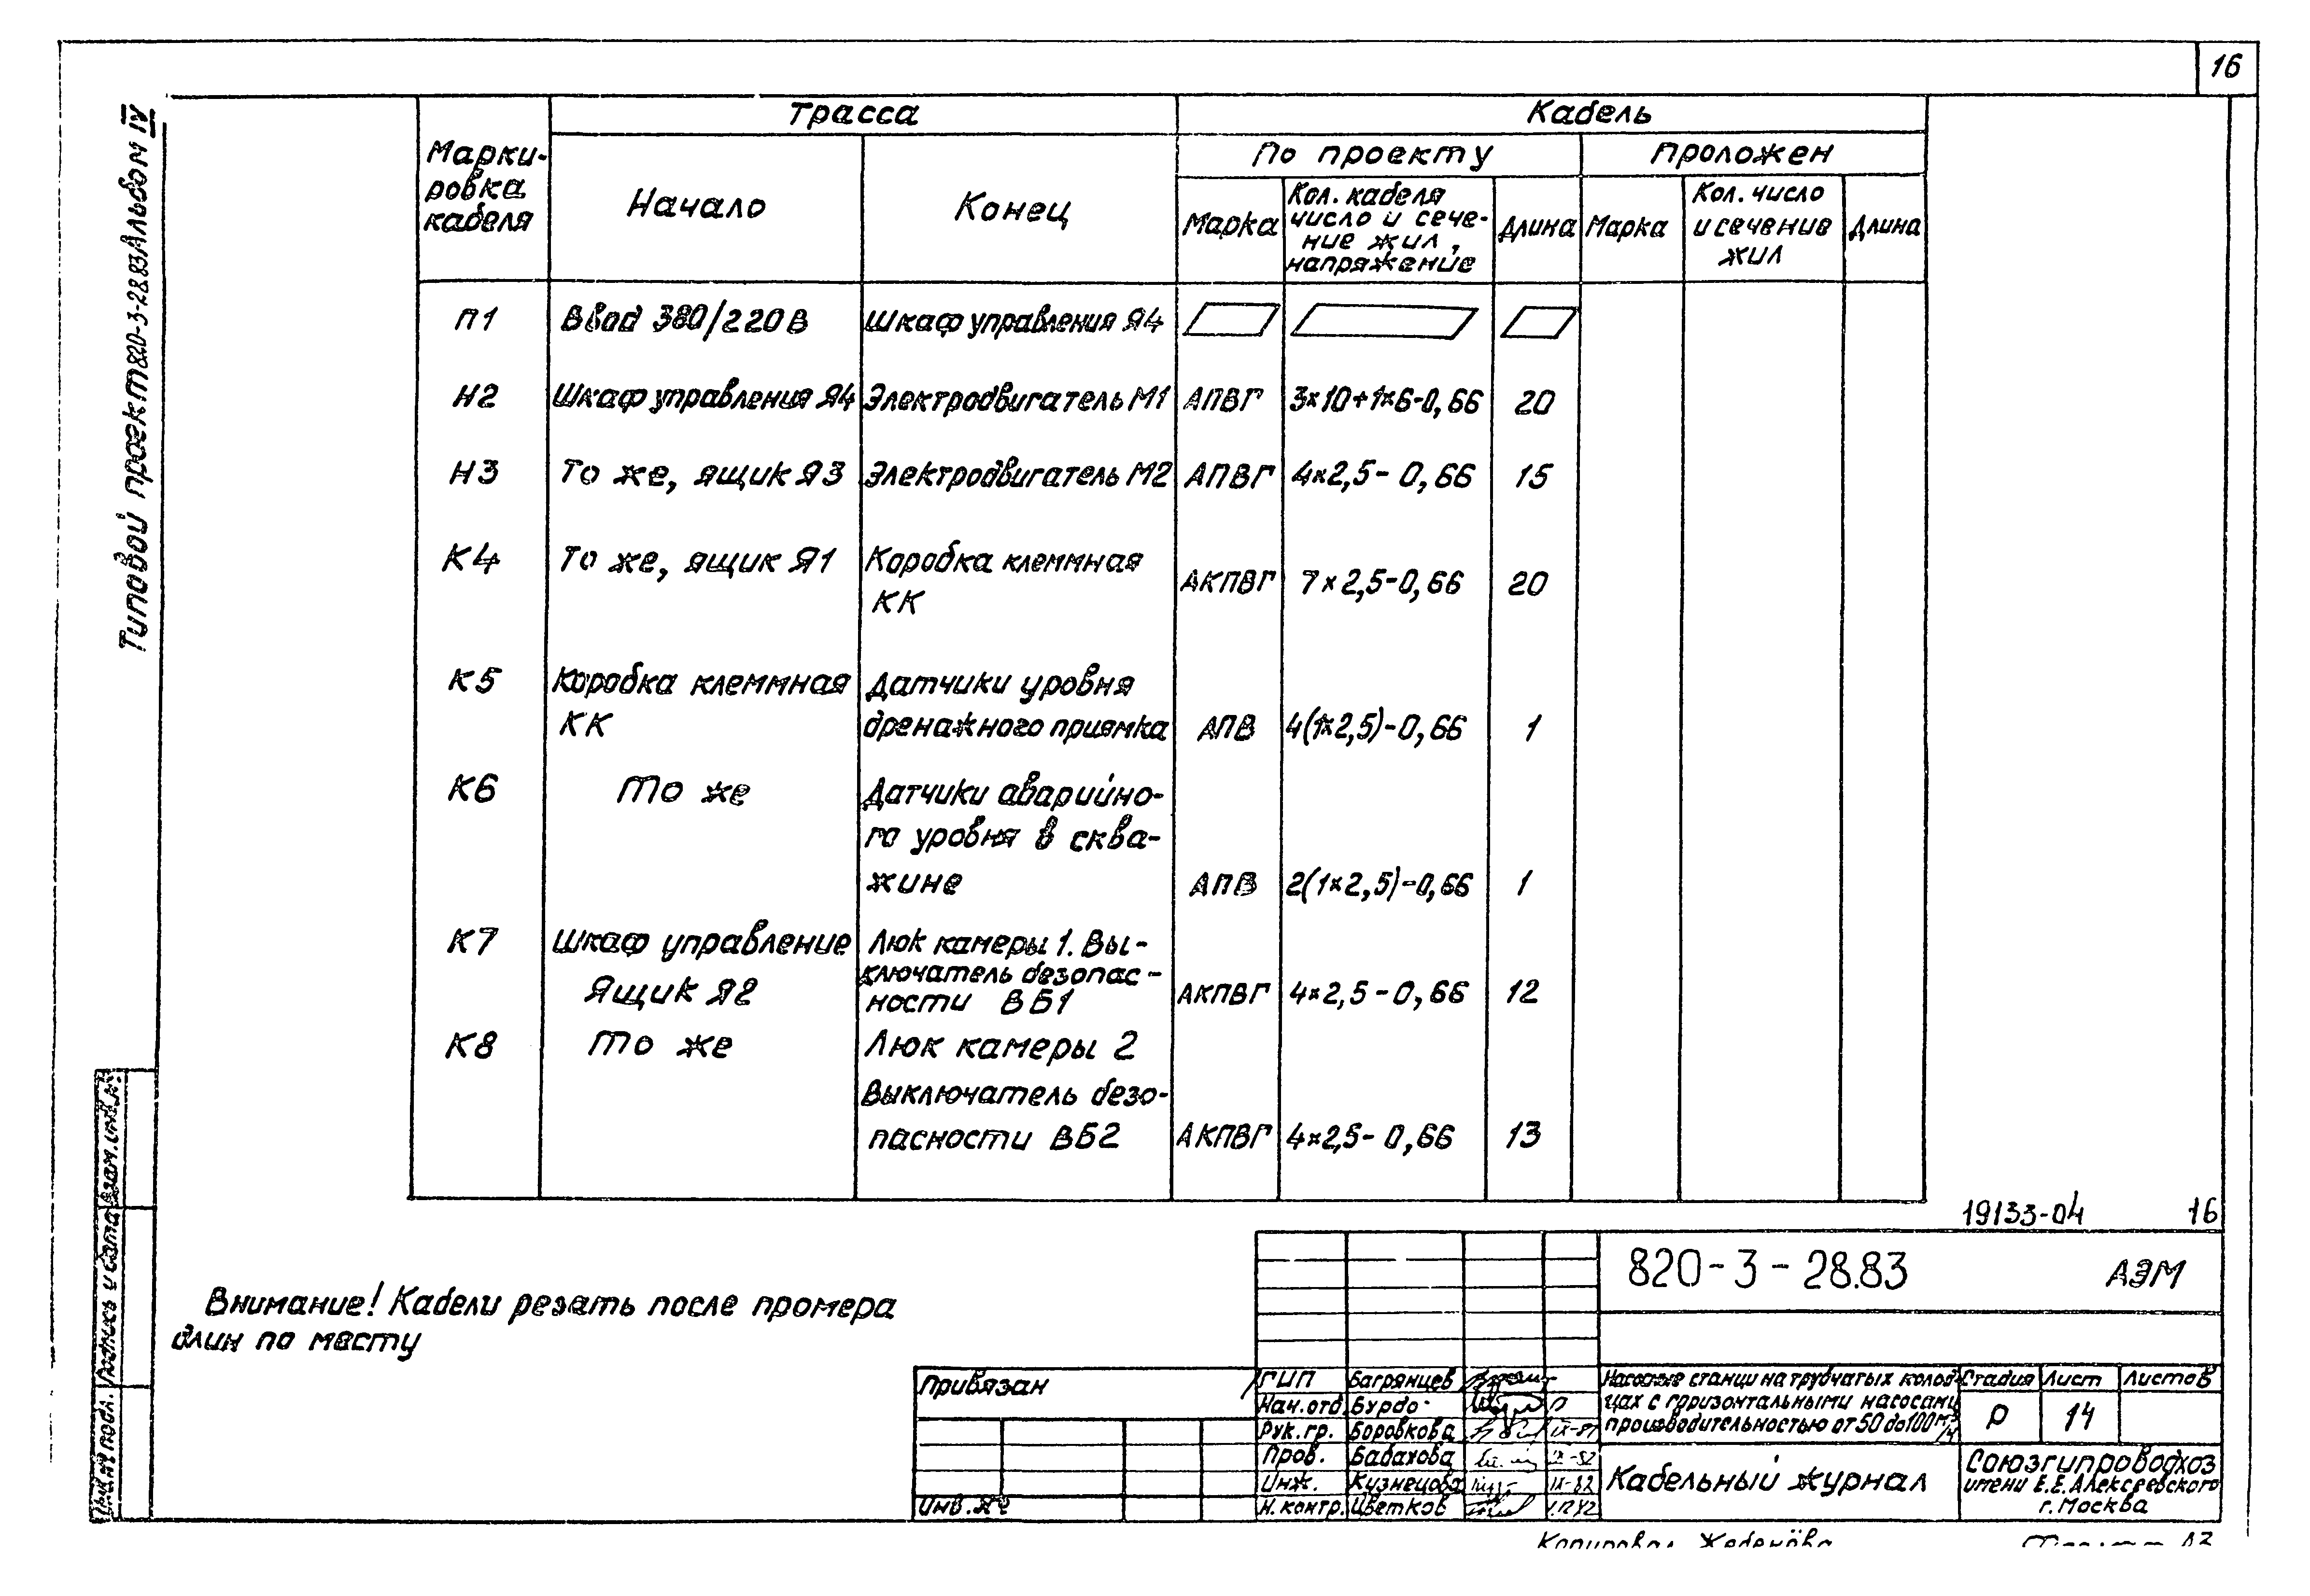 16
Типовой проект 820-3-28.83 Альбом IV
Марки-
ровка
кабеля
Трасса
Кабель
Начало
Конец
По проекту
Проложен
Марка
Кол. кабеля
число и сече-
ние жил,
напряжение
Длина
Марка
Кол. число
и сечение
жил
Длина
П1 Ввод 380/220В Шкаф управления Я4
Н2 Шкаф управления Я4 Электродвигатель М1 АПВГ 3×10+1×6-0,66 20
Н3 То же, ящик Я3 Электродвигатель М2 АПВГ 4×2,5-0,66 15
К4 То же, ящик Я1 Коробка клеммная
КК АКПВГ 7×2,5-0,66 20
К5 Коробка клеммная Датчики уровня
КК дренажного приямка АПВ 4(1×2,5)-0,66 1
К6 То же Датчики аварийно-
го уровня в сква-
жине АПВ 2(1×2,5)-0,66 1
К7 Шкаф управление Люк камеры 1. Вы-
ключатель безопас-
Ящик Я2 ности ВБ1 АКПВГ 4×2,5-0,66 12
К8 То же Люк камеры 2
Выключатель безо-
пасности ВБ2 АКПВГ 4×2,5-0,66 13
19133-04 16
Внимание! Кабели резать после промера
длин по месту
820-3-28.83 АЭМ
Привязан
Инв. №
ГИП Багрянцев
Нач. отд Бурдо
Рук. гр. Боровкова
Пров. Бабахова IX-82
Инж. Кузнецова IX-82
Н. контр. Цветков
Насосные станции на трубчатых колод-
цах с горизонтальными насосами
производительностью от 50 до 100 м³/ч
Стадия Лист Листов
Р 14
Кабельный журнал
Союзгипроводхоз
имени Е.Е. Алексеевского
г. Москва
Взам. инв. №
Подпись и дата
Инв. № подл.
Копировал Жеденёва
Формат А3